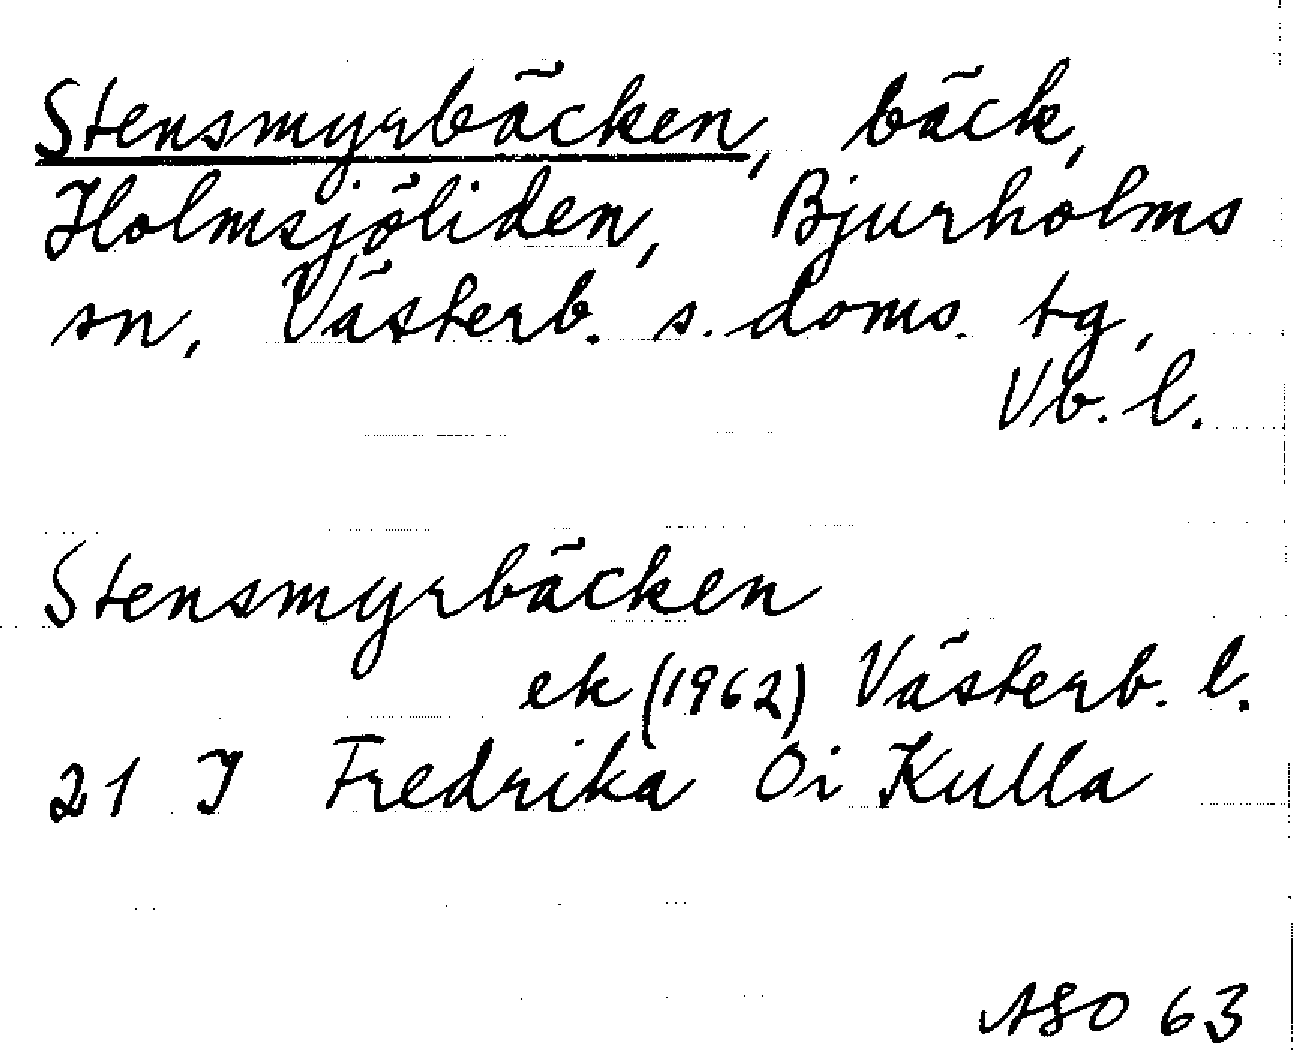 Stensmyrbäcken, bäck,
Holmsjöliden, Bjurholms
sn, Västerb. s. doms. tg,
Vb. l.
Stensmyrbäcken
ek (1962) Västerb. l.
21 J Fredrika Öi Kulla
ASO 63